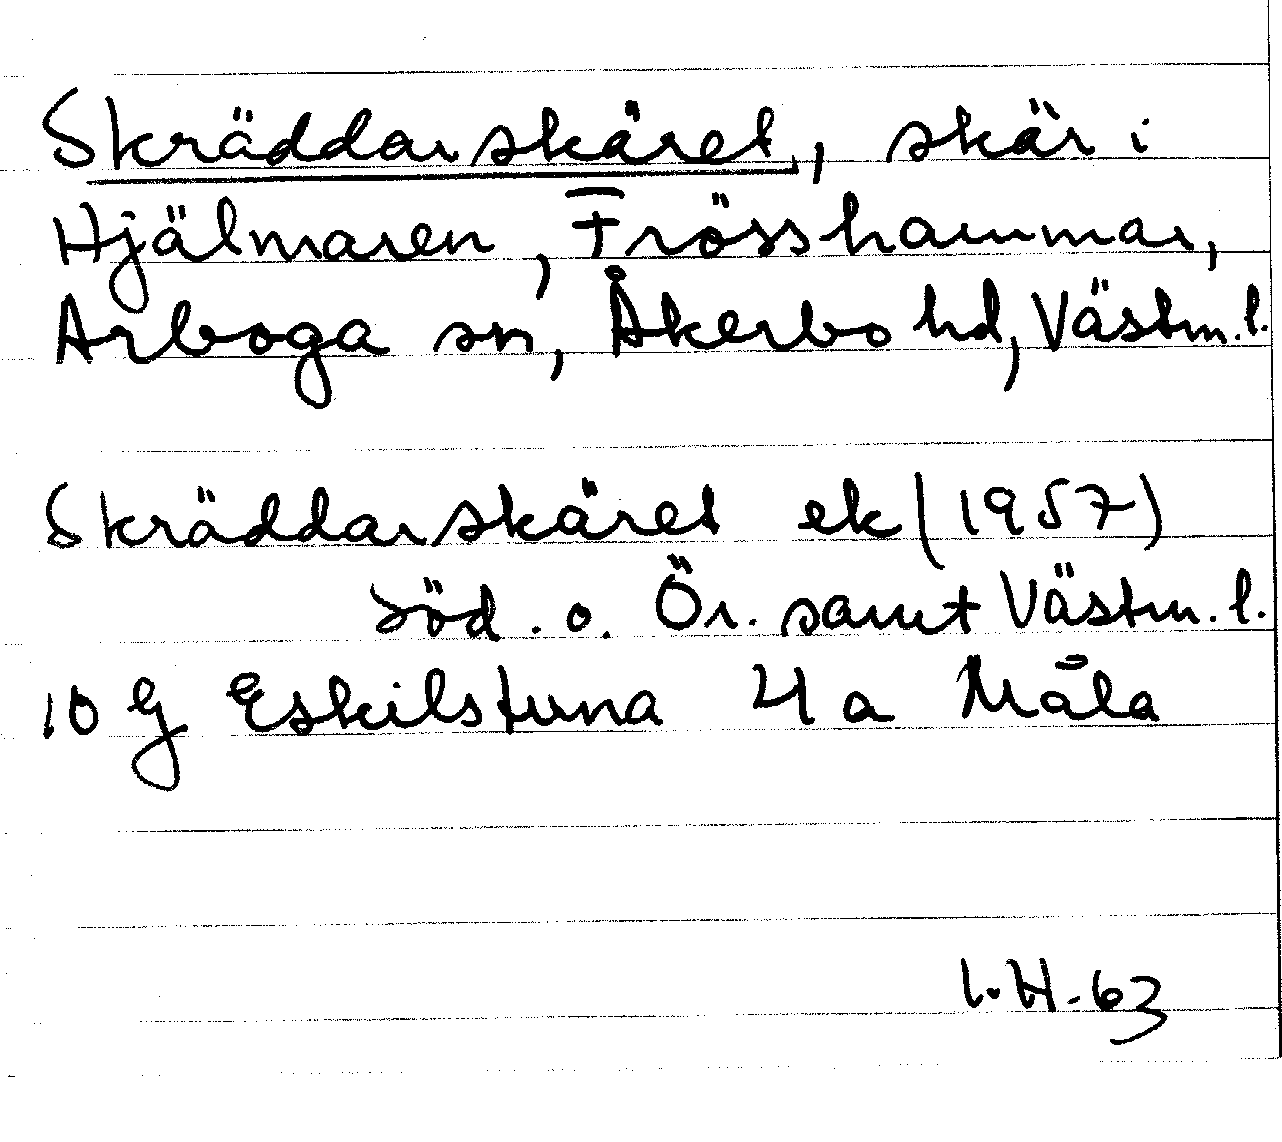 Skräddarskäret, skär i
Hjälmaren, Frösshammar,
Arboga sn, Åkerbo hd, Västm. l.
Skräddarskäret ek (1957)
Söd. o. Ör. samt Västm. l.
10 g Eskilstuna 4 a Måla
I. H. 63